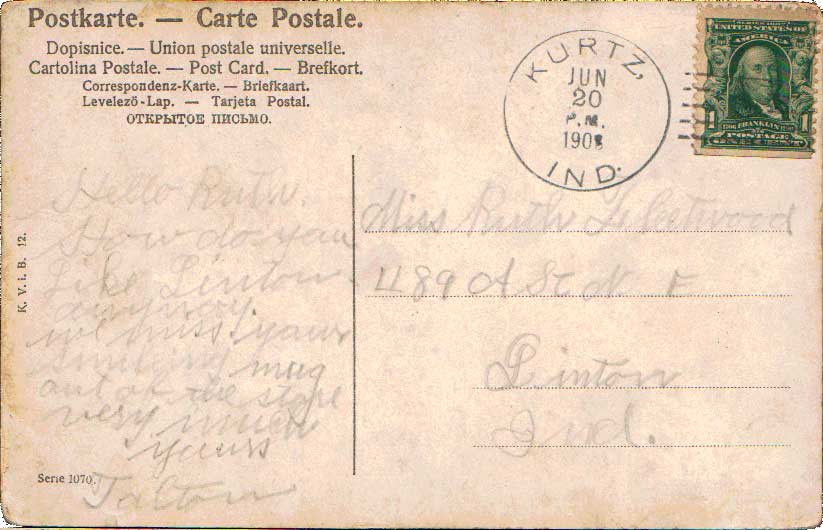 Postkarte. — Carte Postale.
Dopisnice. — Union postale universelle.
Cartolina Postale. — Post Card. — Brefkort.
Correspondenz-Karte. — Briefkaart.
Levelező-Lap. — Tarjeta Postal.
ОТКРЫТОЕ ПИСЬМО.
KURTZ,
JUN
20
P.M.
190
IND.
UNITED STATES OF
AMERICA
1 FRANKLIN 1
POSTAGE
ONE CENT
Hello Ruth.
How do you
like Linton
anyway.
we miss your
smileing mug
out at the store
very much
yours
Talton
Miss Ruth Fleetwood
489 A St. N. E
Linton
Ind.
K. V. i. B. 12.
Serie 1070.